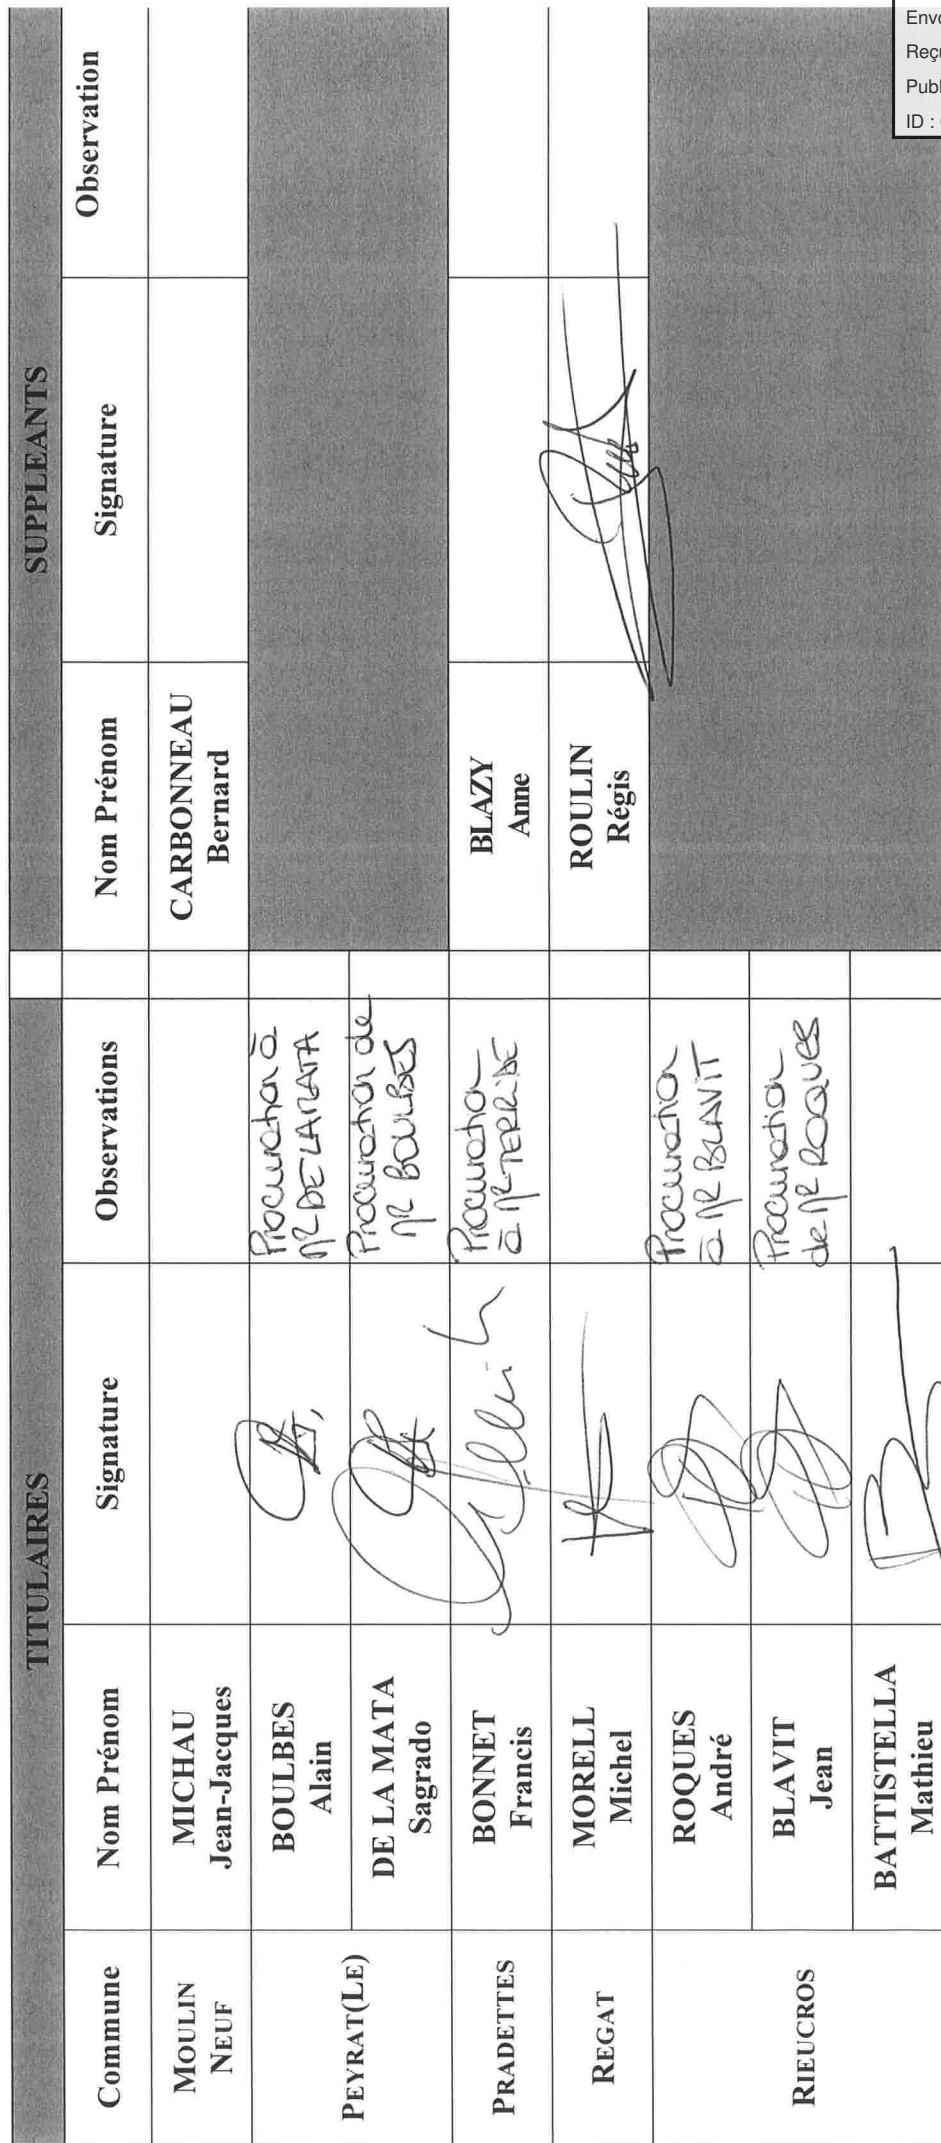 Envo
Reçu
Publ
ID :
TITULAIRES
SUPPLEANTS
Commune
Nom Prénom
Signature
Observations
Nom Prénom
Signature
Observation
MOULIN
NEUF
MICHAU
Jean-Jacques
CARBONNEAU
Bernard
PEYRAT(LE)
BOULBES
Alain
Procuration à
MR DE LA MATA
DE LA MATA
Sagrado
Procuration de
MR BOULBES
PRADETTES
BONNET
Francis
Procuration
à MR TERRIDE
BLAZY
Anne
REGAT
MORELL
Michel
ROULIN
Régis
RIEUCROS
ROQUES
André
Procuration
à MR BLAVIT
BLAVIT
Jean
Procuration
de MR ROQUES
BATTISTELLA
Mathieu